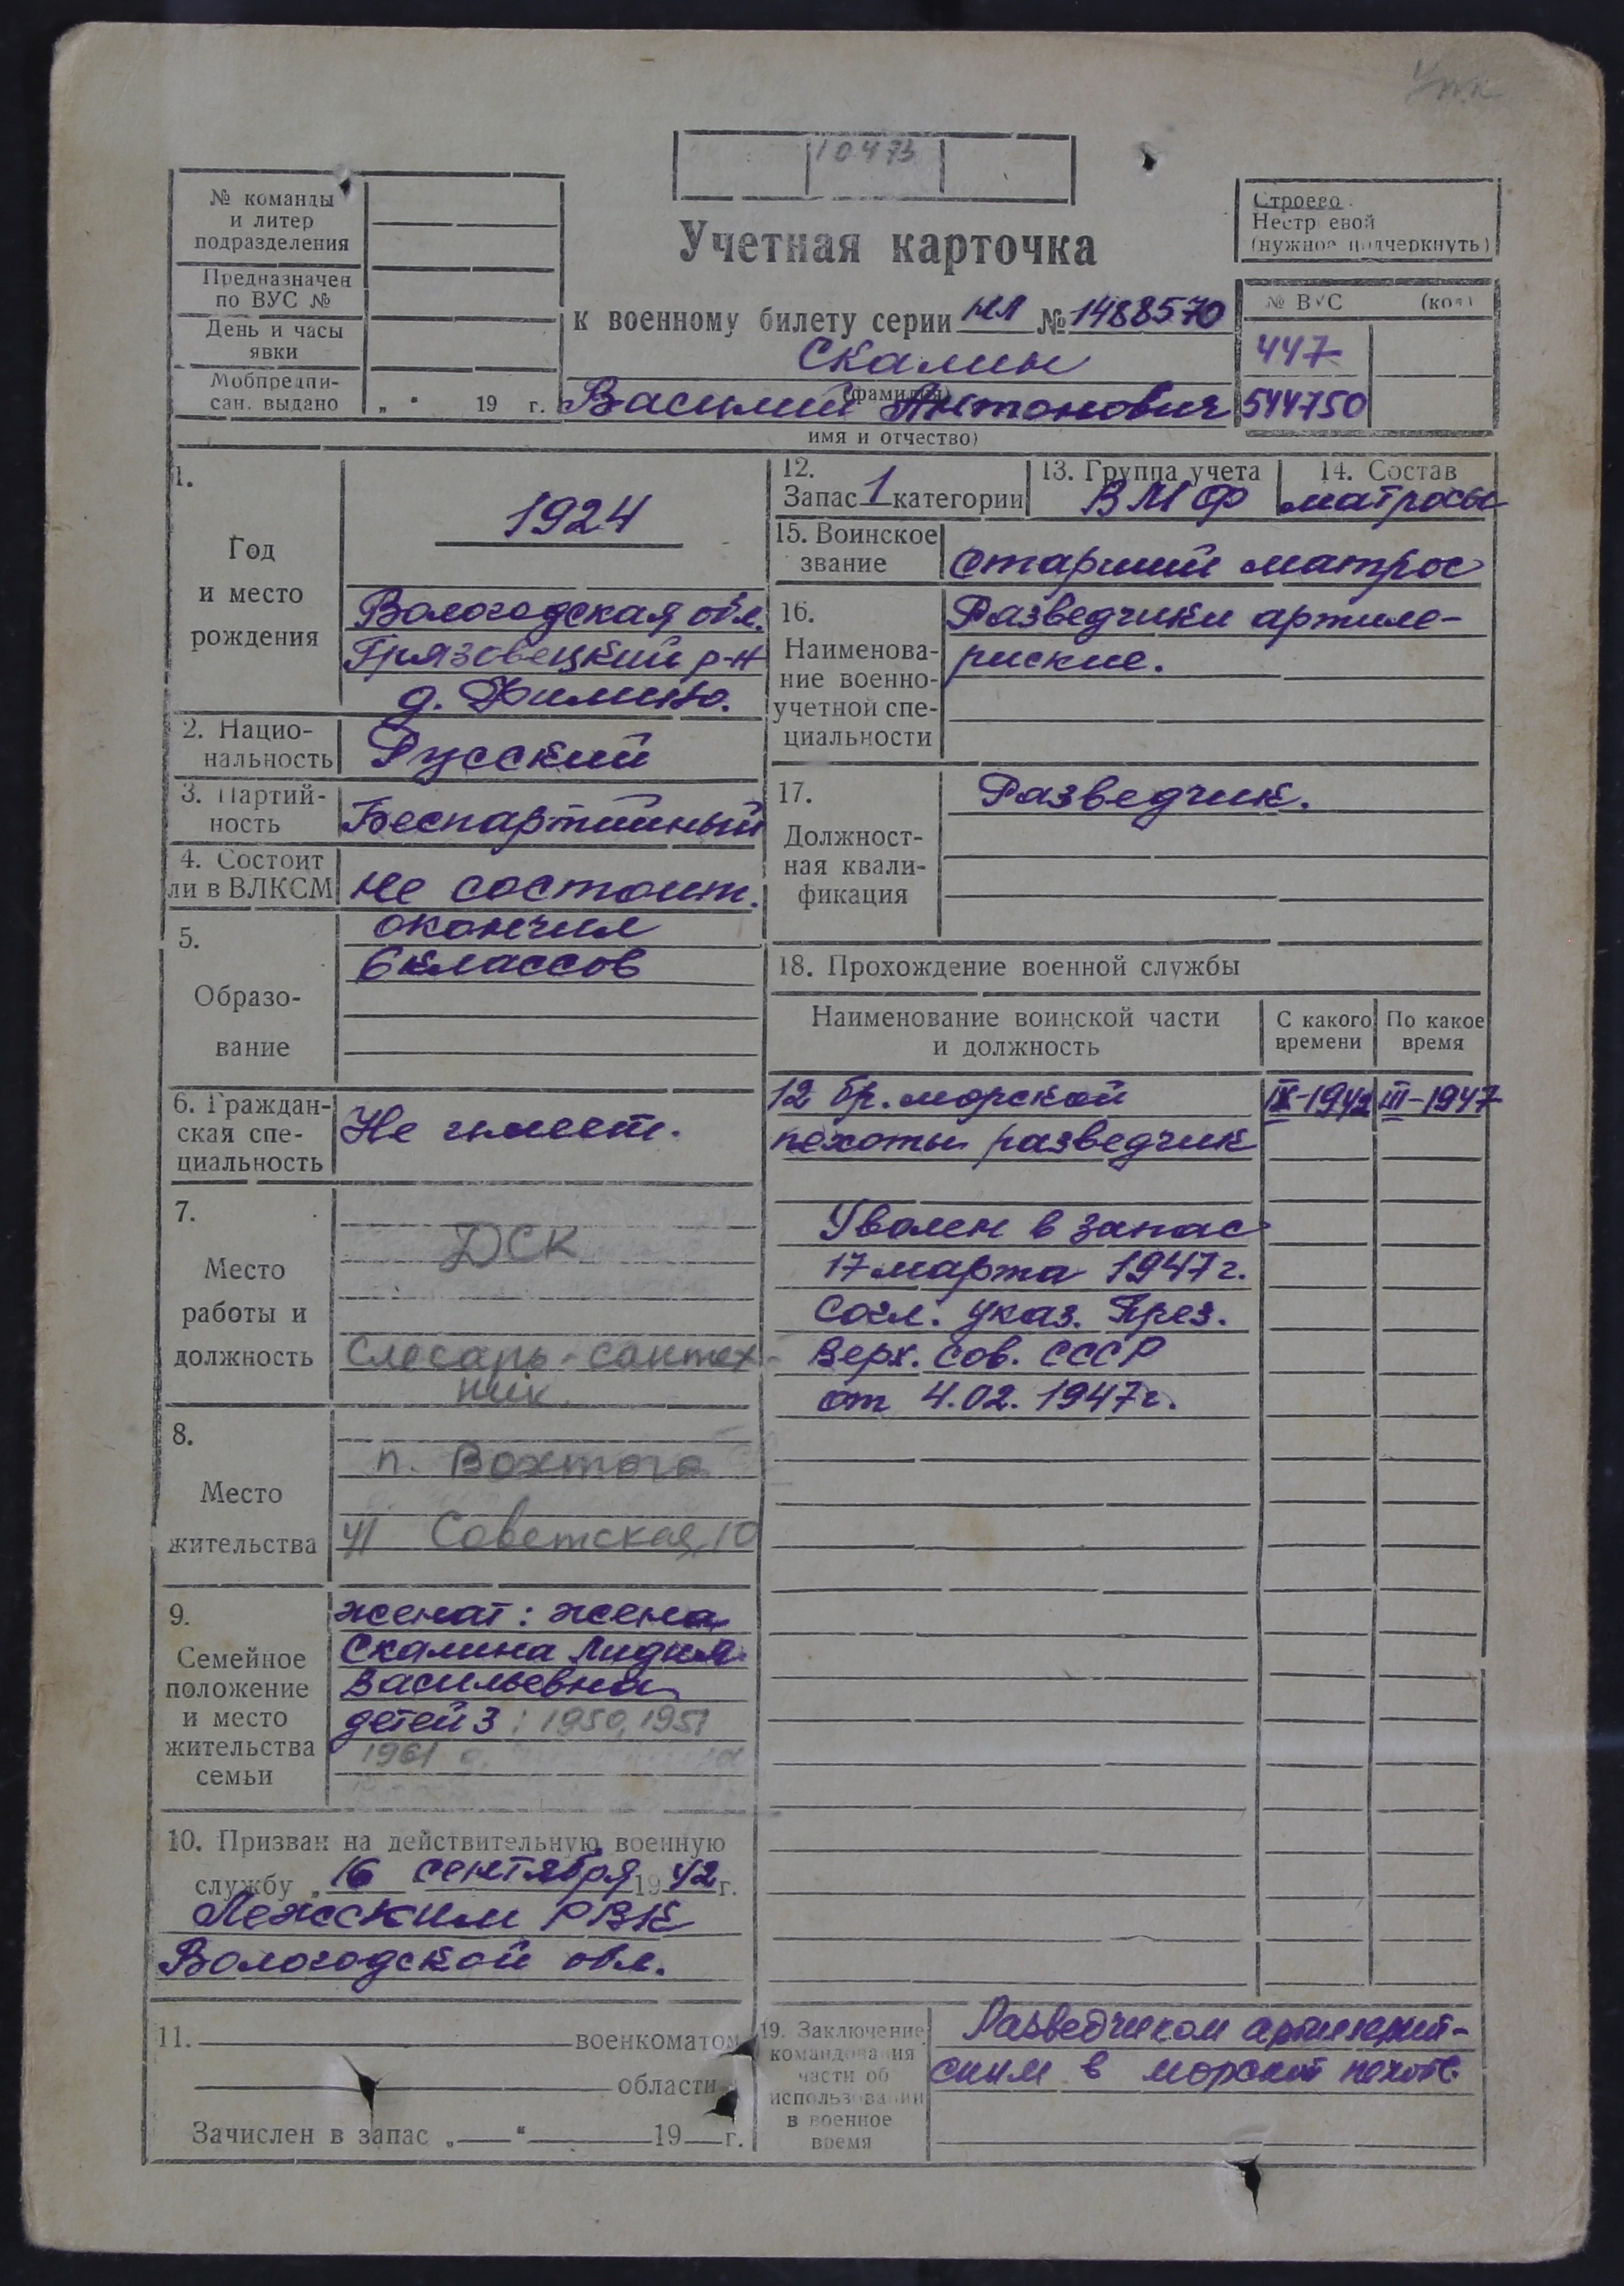 10473
№ команды
и литер
подразделения
Предназначен
по ВУС №
День и часы
явки
Мобпредпи-
сан. выдано „ “ 19 г.
Учетная карточка
к военному билету серии НЛ № 1488570
Скалин
(фамилия)
Василий Антонович
имя и отчество)
Строево
Нестр евой
(нужное подчеркнуть)
№ ВУС (код)
447
544750
1.
Год
и место
рождения
1924
Вологодская обл.
Грязовецкий р-н
д. Филино.
2. Нацио-
нальность
Русский
3. Партий-
ность
Беспартийный
4. Состоит
ли в ВЛКСМ
не состоит.
5.
Образо-
вание
окончил
6 классов
6. Граждан-
ская спе-
циальность
Не имеет.
7.
Место
работы и
должность
ДСК
Слесарь-сантех-
ник
8.
Место
жительства
п. Вохтога
ул Советская, 10
9.
Семейное
положение
и место
жительства
семьи
женат: жена
Скалина Лидия
Васильевна
детей 3: 1950, 1951
1961
10. Призван на действительную военную
службу „16 сентября 1942 г.
Лежским РВК
Вологодской обл.
11. военкоматом
области
Зачислен в запас „ “ 19 г.
12.
Запас 1 категории
13. Группа учета
ВМФ
14. Состав
матросы
15. Воинское
звание
Старший матрос
16.
Наименова-
ние военно-
учетной спе-
циальности
Разведчики артиле-
риские.
17.
Должност-
ная квали-
фикация
Разведчик.
18. Прохождение военной службы
Наименование воинской части
и должность
С какого
времени
По какое
время
12 бр. морской IX-1942 III-1947
пехоты разведчик
Уволен в запас
17 марта 1947 г.
Согл. указ. През.
Верх. Сов. СССР
от 4.02.1947г.
19. Заключение
командования
части об
использовании
в военное
время
Разведчиком артилерий-
ским в морской пехоте